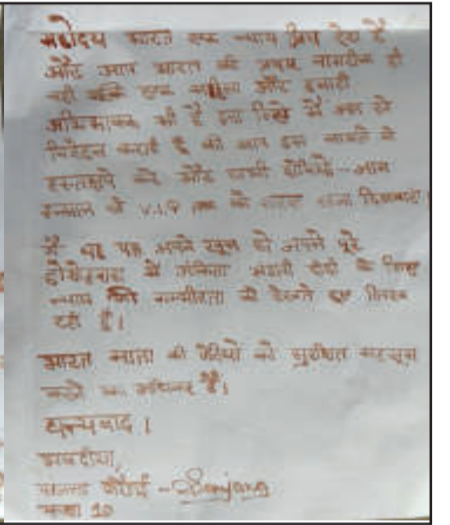 महोदय भारत एक न्याय प्रिय देश है
और आप भारत की प्रथम नागरिक ही
नही एक महिला और हमारी
अभिभावक भी है इस लिये मैं आप से
निवेदन करती हूँ की आप इस मामले मे
हस्तक्षेप करे और सभी दोषियो - आम
इन्सान से V.I.P तक को सजा दिलवाए।
मैं यह पत्र अपने खून से अपने पूरे
होशोहवास में अंकिता भंडारी दीदी के लिए
न्याय की गम्भीरता को देखते हुए लिख
रही हूँ।
भारत माता की बेटियों को सुरक्षित महसूस
करने का अधिकार है।
धन्यवाद।
भवदीया,
Sanjana
कक्षा 10